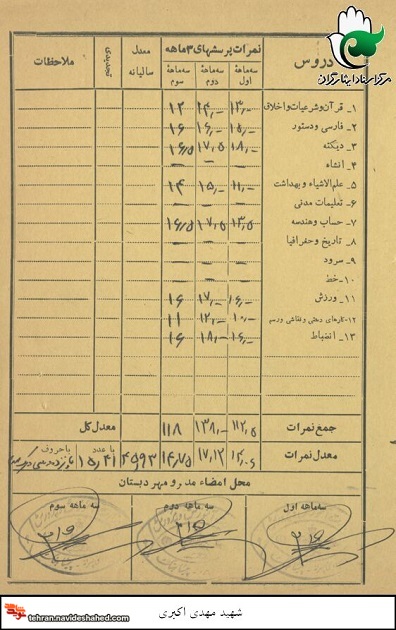 مرکز اسناد ایثارگران
دروس
نمرات پرسشهای ۳ماهه
معدل سالیانه
تجدیدی
ملاحظات
سه ماههٔ اول
سه ماههٔ دوم
سه ماههٔ سوم
۱_ قرآن و شرعیات و اخلاق ۱۳,- ۱۴,- ۱۲
۲_ فارسی و دستور ۱۵,- ۱۶,- ۱۶
۳_ دیکته ۱۸,- ۱۷,۵ ۱۶,۵
۴_ انشاء — — —
۵_ علم‌الاشیاء و بهداشت ۱۱,- ۱۵,- ۱۴
۶_ تعلیمات مدنی — — —
۷_ حساب و هندسه ۱۳,۵ ۱۷,۵ ۱۶,۵
۸_ تاریخ و جغرافیا — — —
۹_ سرود — — —
۱۰_ خط — — —
۱۱_ ورزش ۱۶,- ۱۷,- ۱۶
۱۲_ کارهای دستی و نقاشی و رسم ۱۰,- ۱۲,- ۱۱
۱۳_ انضباط ۱۶,- ۱۸,- ۱۶
جمع نمرات ۱۱۲,۵ ۱۳۸,- ۱۱۸ معدل کل
معدل نمرات ۱۴,۰۶ ۱۷,۱۲ ۱۴,۷۵ ۴۵,۹۳ با عدد ۱۵,۴۱ با حروف
محل امضاء مدیر و مهر دبستان
سه ماهه اول
سه ماهه دوم
سه ماهه سوم
tehran.navideshahed.com
شهید مهدی اکبری